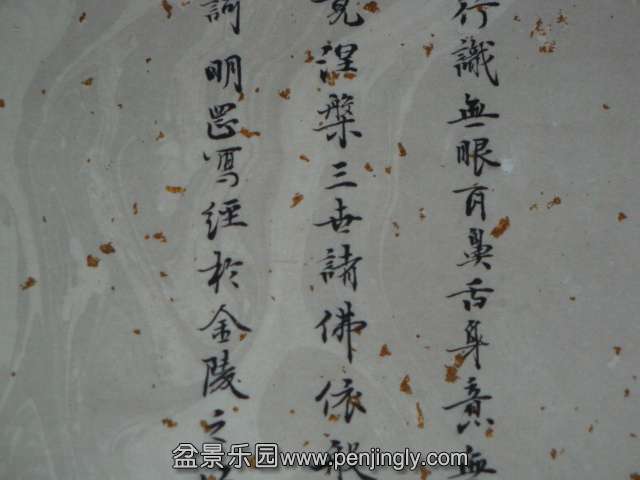 行識無眼耳鼻舌身意無
竟涅槃三世諸佛依般
訶 明罡寫經於金陵之
盆景乐园----www.penjingly.com